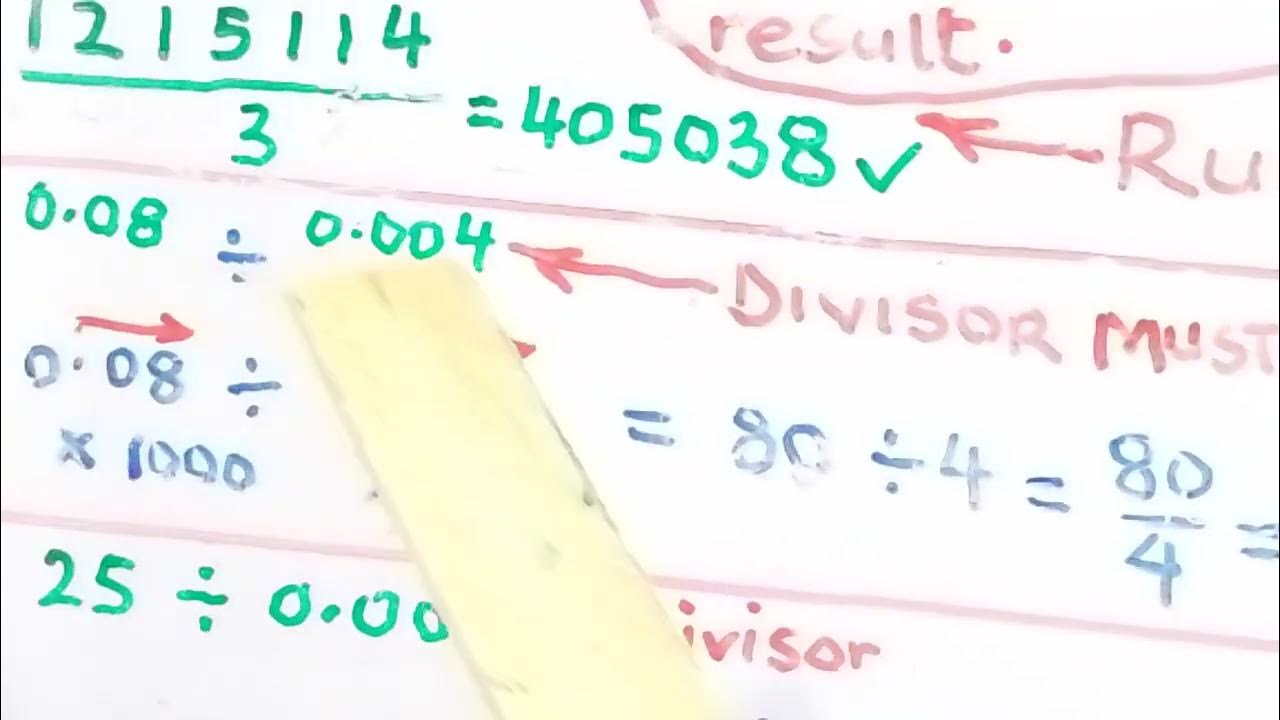 result.
1215114
3
=405038✓
Ru
0.08 ÷ 0.004
DIVISOR MUST
0.08 ÷
× 1000
= 80 ÷ 4 = 80/4 =
25 ÷ 0.00
ivisor